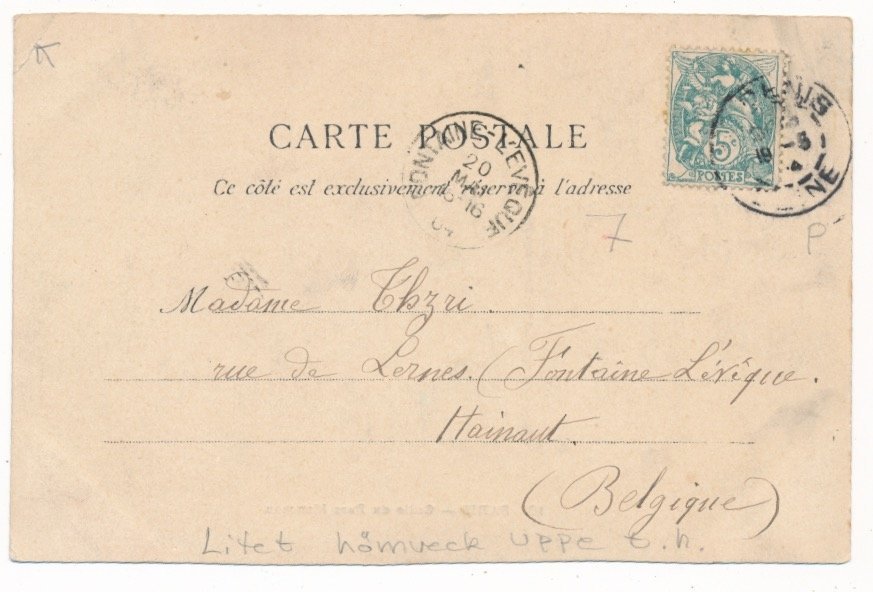 CARTE POSTALE
Ce côté est exclusivement réservé à l'adresse
FONTAINE-L'EVEQUE
20
MAI
15-16
04
5c
POSTES
PARIS
7
P
Madame Thzri.
rue de Lernes. (Fontaine L'évêque.
Hainaut.
(Belgique)
PARIS
Litet hörnveck uppe t.h.